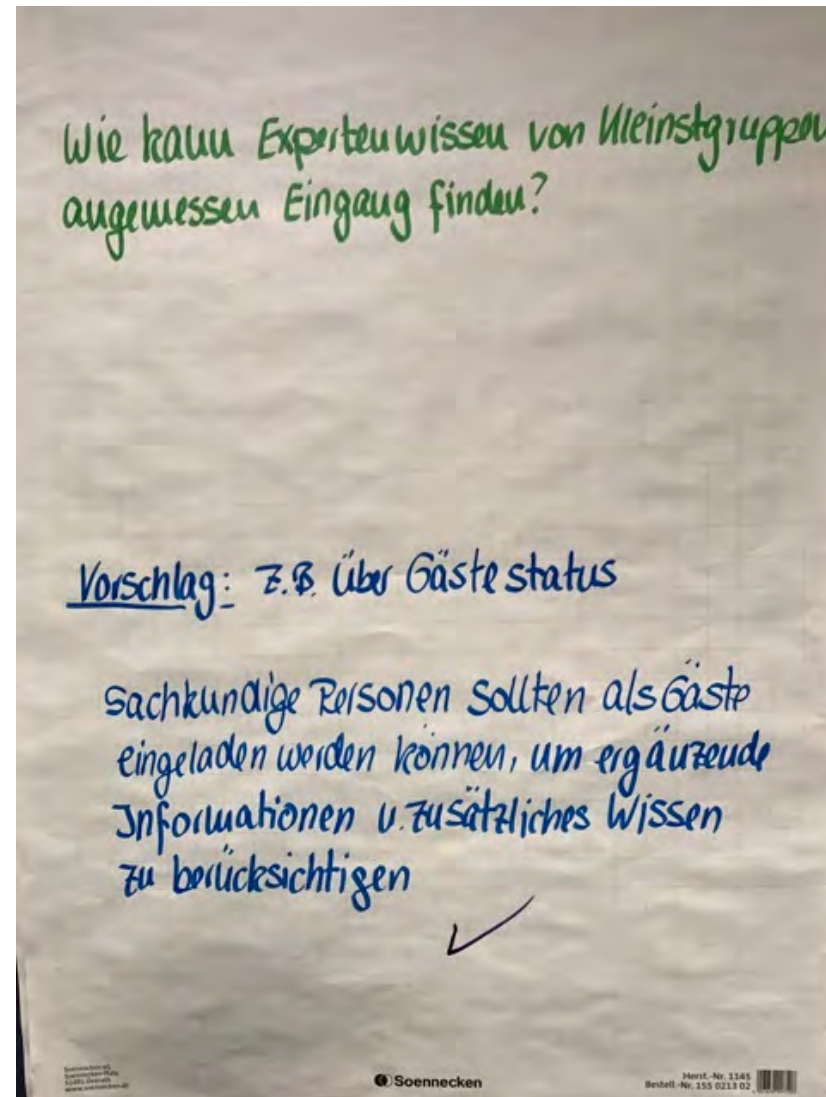 Wie kann Expertenwissen von Kleinstgruppen
angemessen Eingang finden?
Vorschlag: z.B. Über Gästestatus
Sachkundige Personen sollten als Gäste
eingeladen werden können, um ergänzende
Informationen u. zusätzliches Wissen
zu berücksichtigen
Soennecken eG
Soennecken-Platz
51491 Overath
www.soennecken.de
Soennecken
Herst.-Nr. 1145
Bestell.-Nr. 155 0213 02